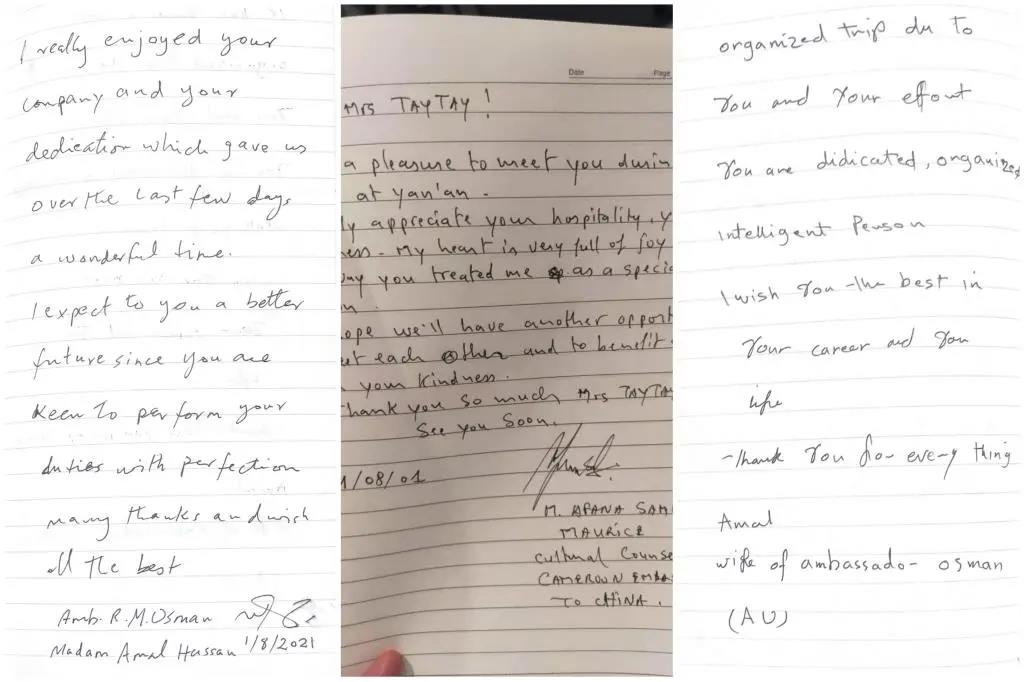 I really enjoyed your
company and your
dedication which gave us
over the last few days
a wonderful time.
I expect to you a better
future since you are
keen to perform your
duties with perfection
many thanks and wish
all the best
Amb. R.M.Osman
Madam Amal Hassan 1/8/2021
Date Page
Mrs TAYTAY !
a pleasure to meet you durin
at Yan'an.
ly appreciate your hospitality, y
ness. My heart is very full of joy
way you treated me as a specia
ope we'll have another opport
et each other and to benefit
your kindness.
hank you so much Mrs TAYTAY
See you soon.
1/08/01
M. AFANA SAM
MAURICE
Cultural Counse
CAMEROUN EMBA
TO CHINA.
organized trip du to
You and Your effout
You are didicated, organized
intelligent Person
I wish You the best in
Your career and You
life
Thank You for every thing
Amal
wife of ambassador osman
(AU)